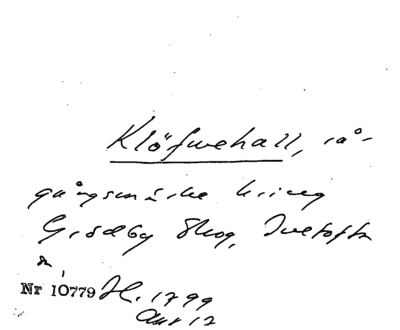 Klöfwehall, rå-
gångsmärke kring
Gisleby Skog, Ivetofta
s,
Nr 10779 Jl. 1799
Akt 12